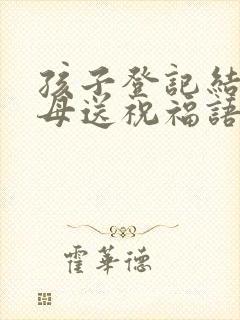 孩子登記結
母送祝福語
霍華德